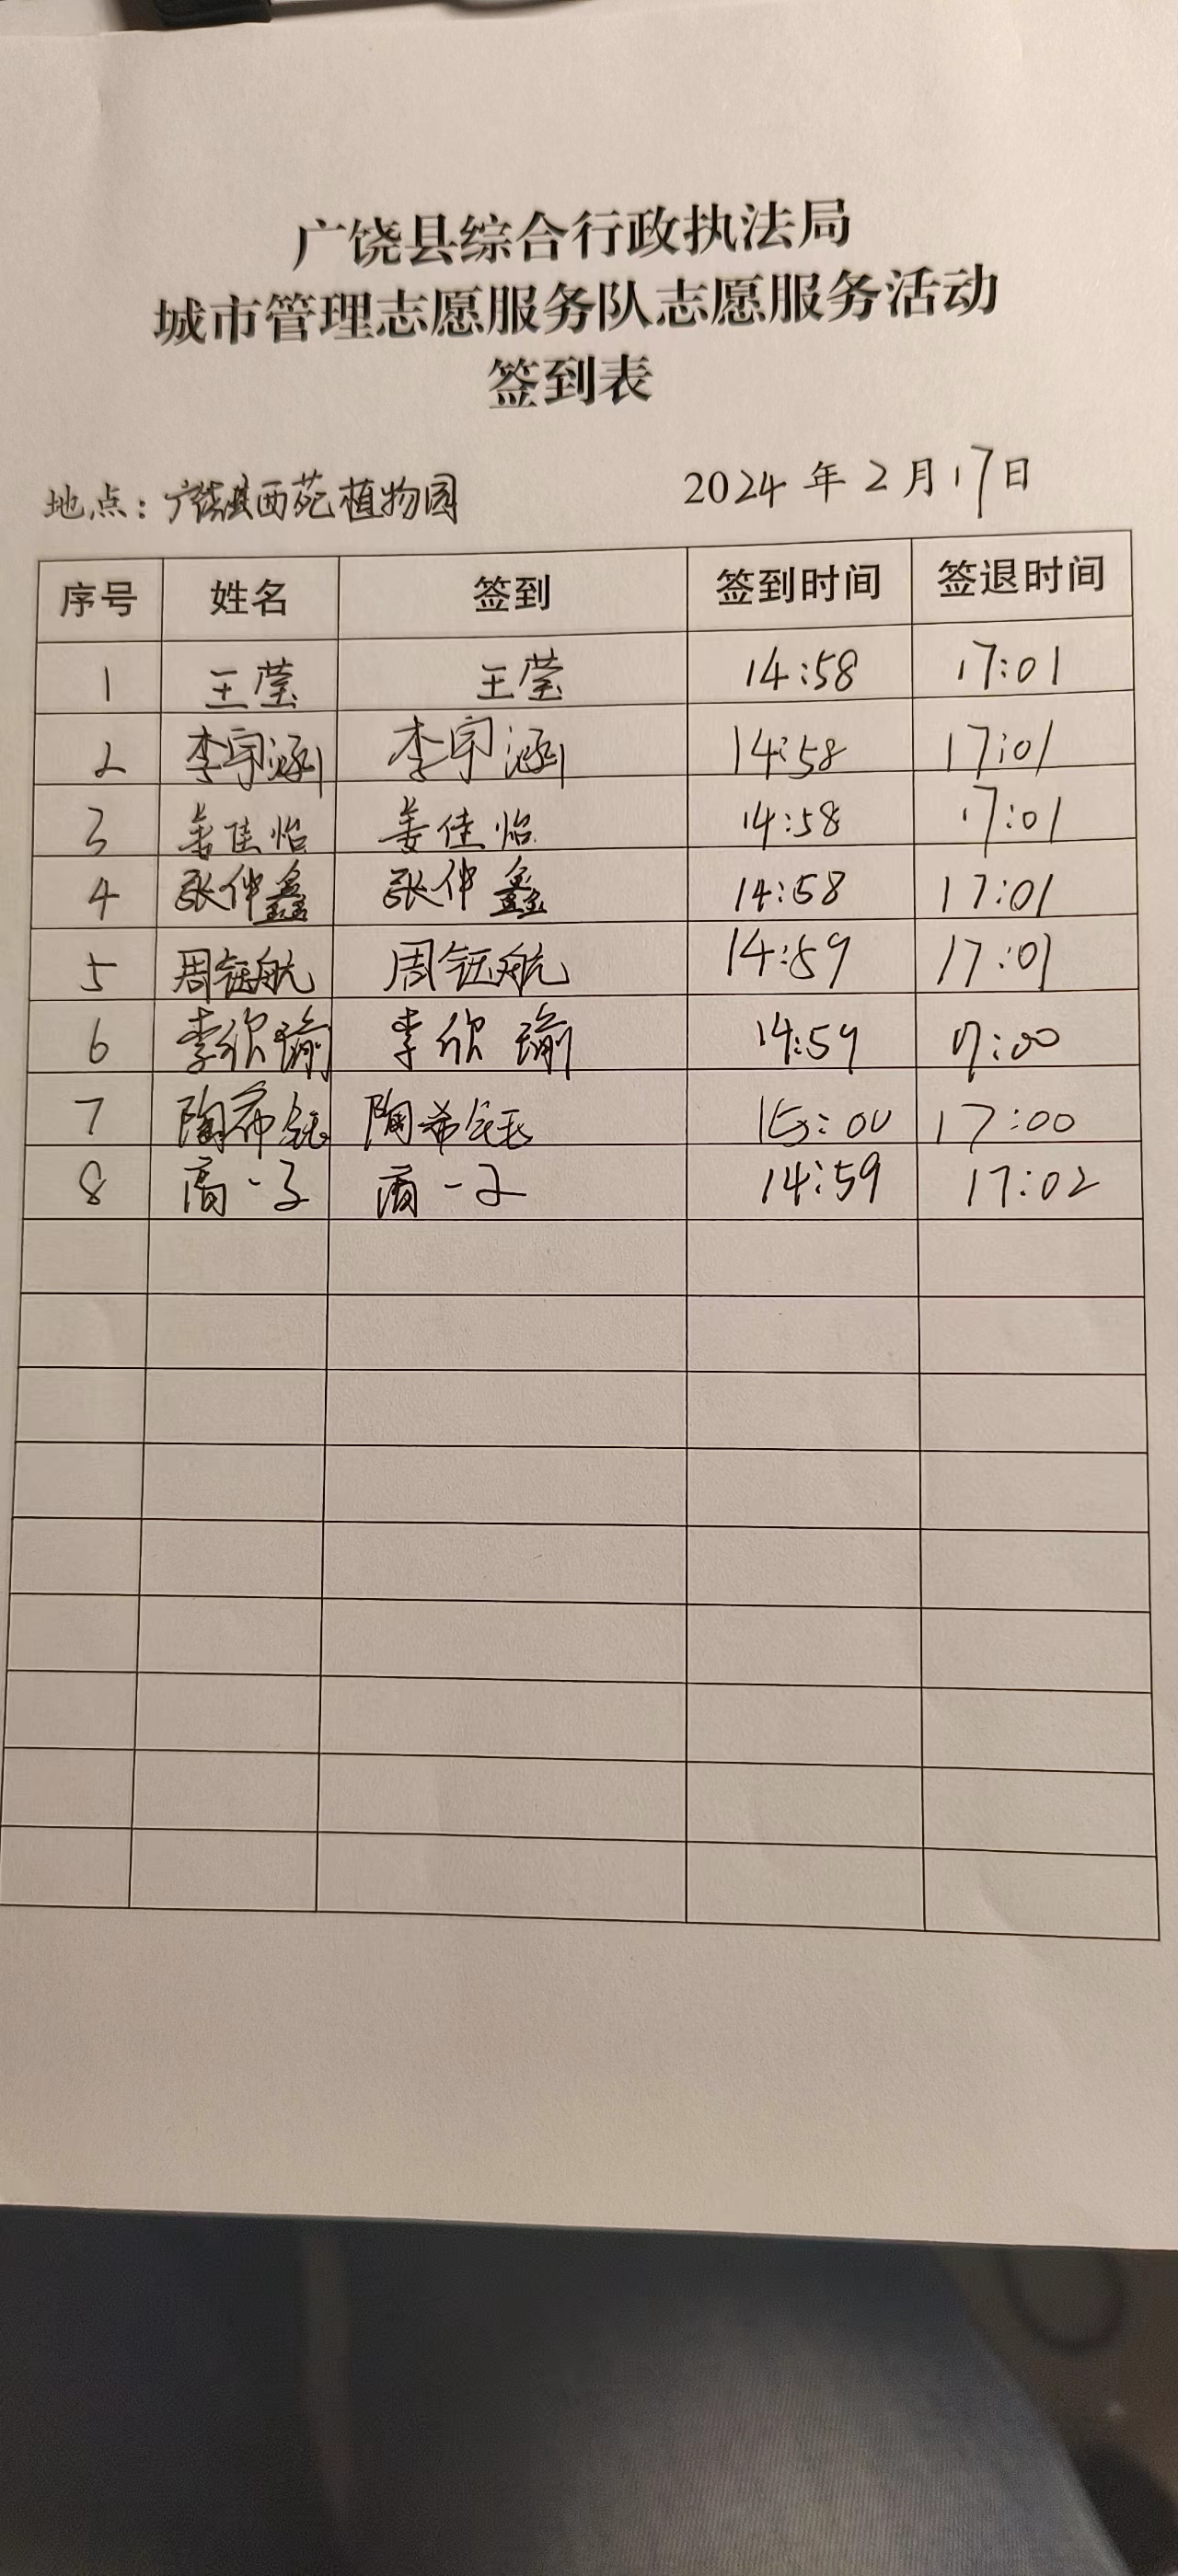 广饶县综合行政执法局
城市管理志愿服务队志愿服务活动
签到表
地点：广饶县西苑植物园 2024年2月17日
序号 姓名 签到 签到时间 签退时间
1 王莹 王莹 14:58 17:01
2 李宇涵 李宇涵 14:58 17:01
3 姜佳怡 姜佳怡 14:58 17:01
4 张仲鑫 张仲鑫 14:58 17:01
5 周钰航 周钰航 14:59 17:01
6 李欣瑜 李欣瑜 14:59 17:00
7 陶希钰 陶希钰 15:00 17:00
8 高一子 高一子 14:59 17:02